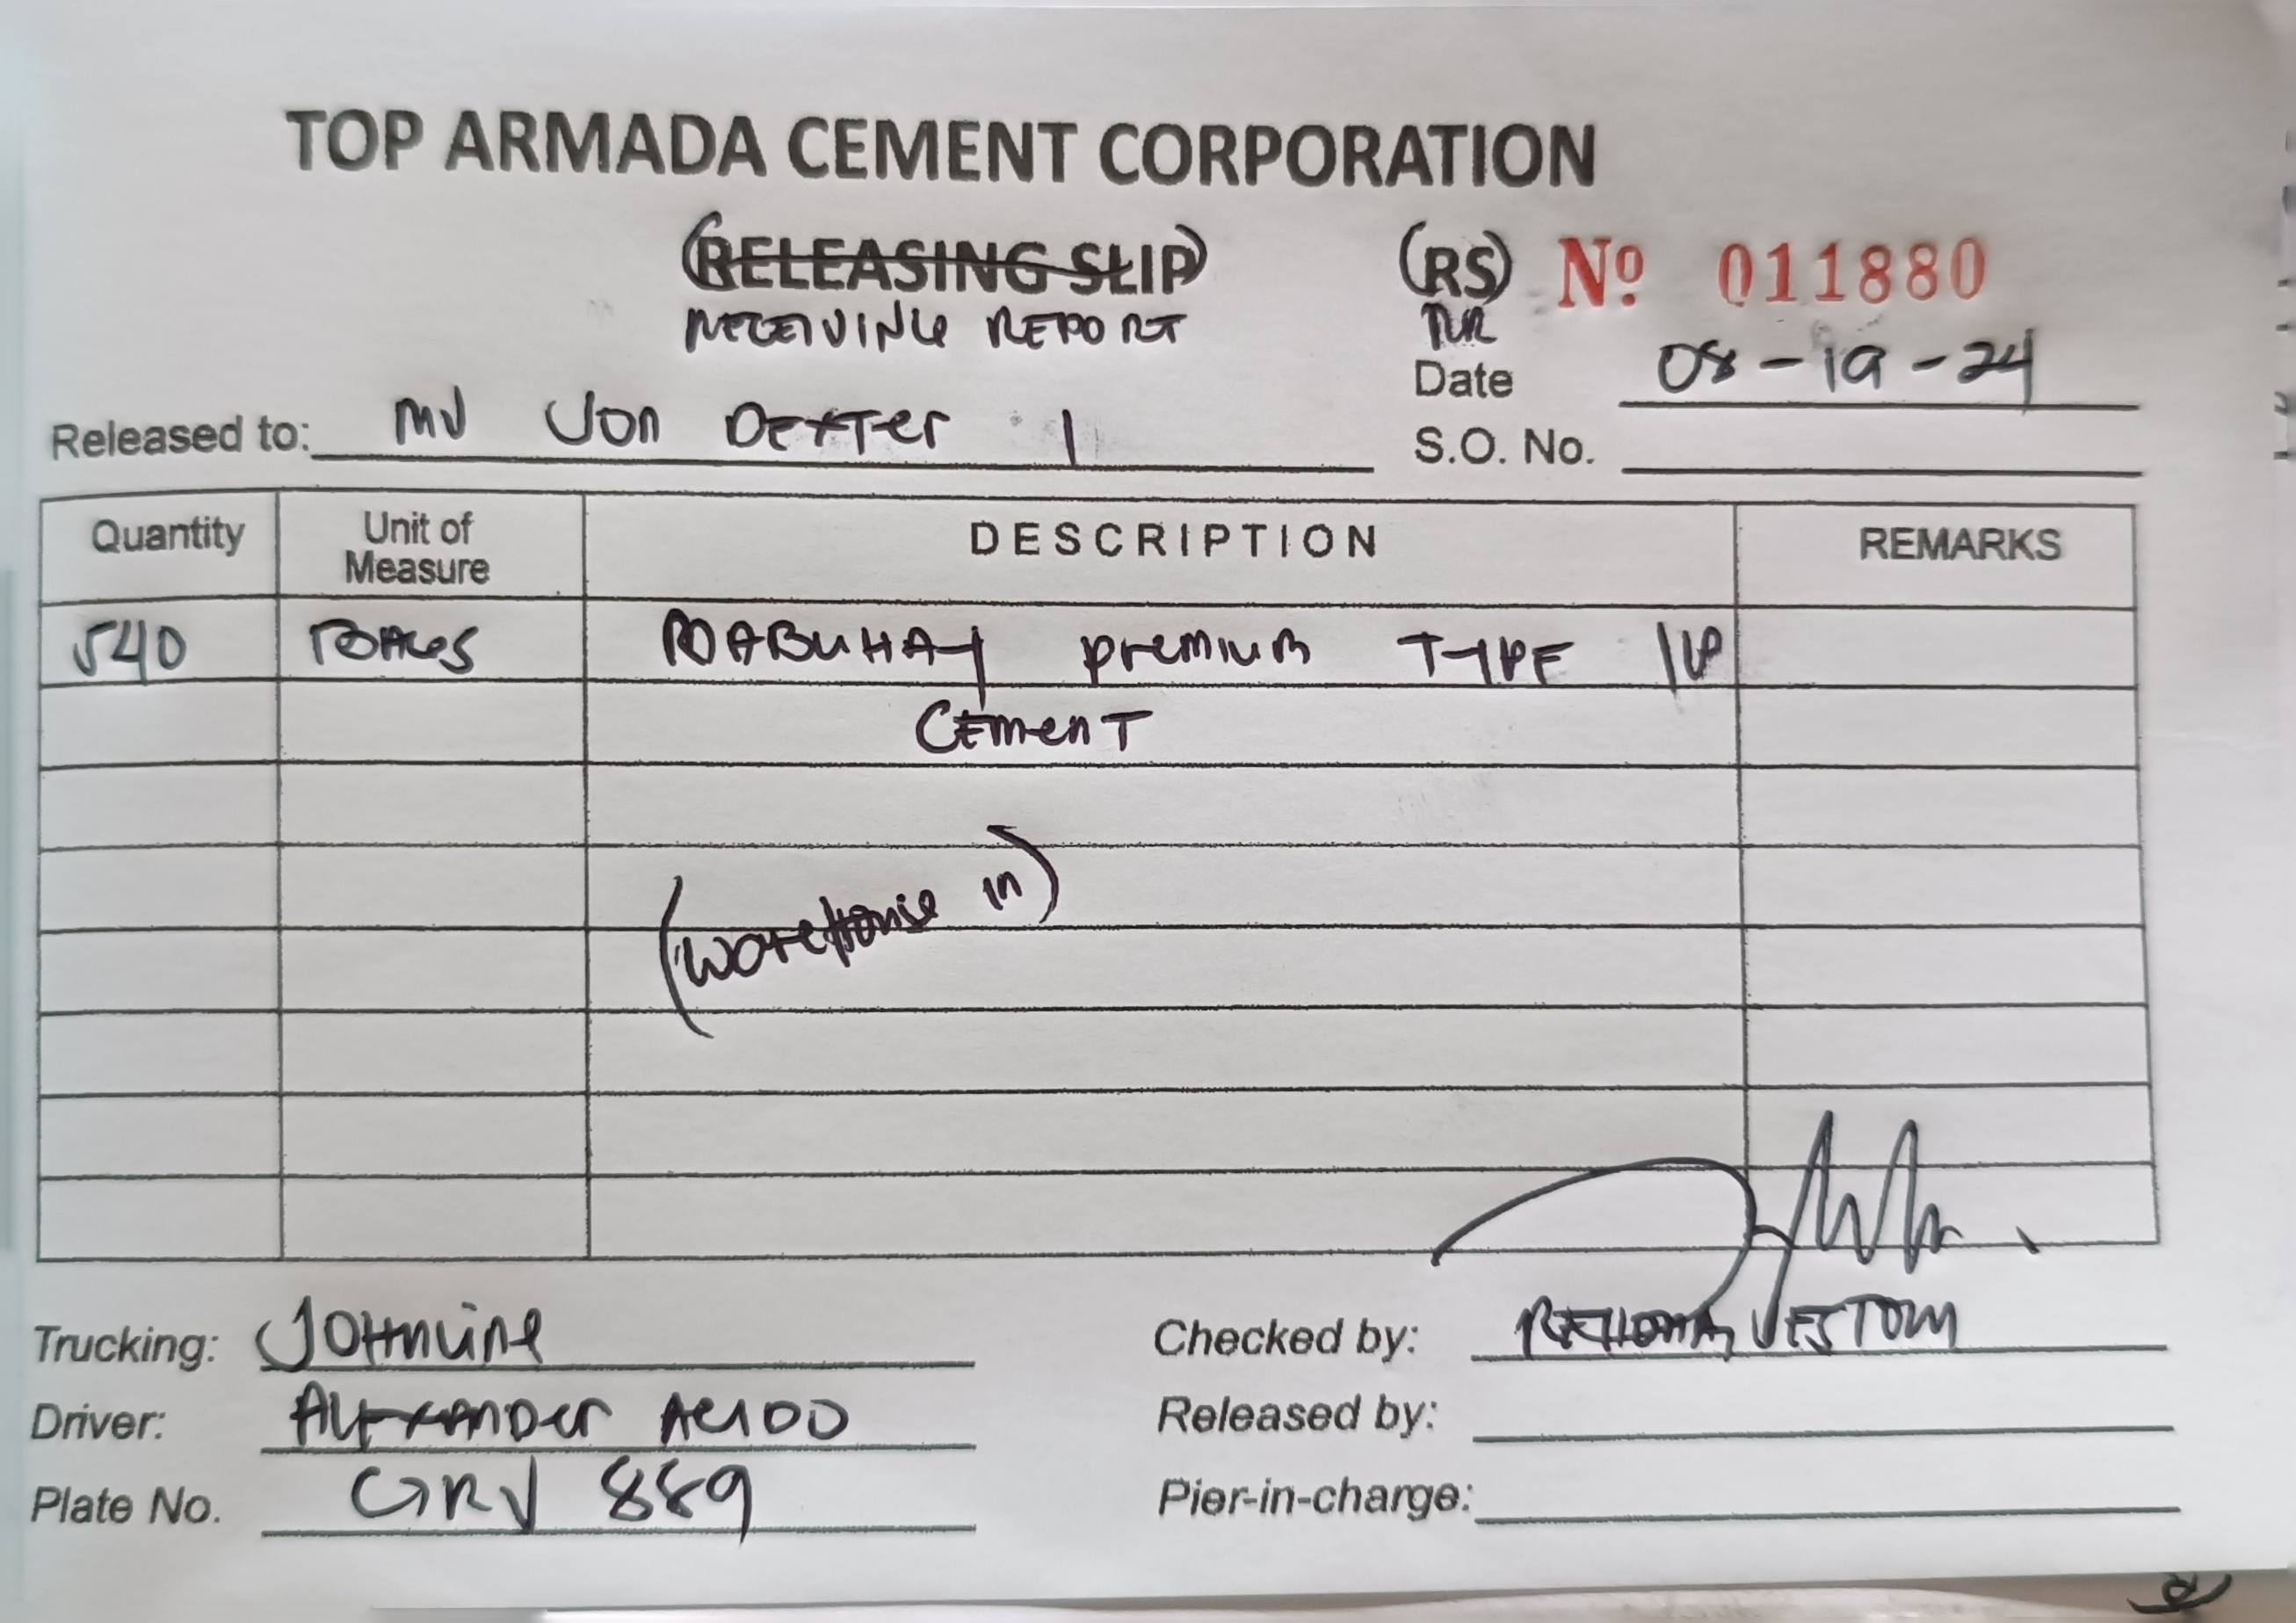 TOP ARMADA CEMENT CORPORATION
(RELEASING SLIP) (RS) Nº 011880
RECEIVING REPORT RR
Date 08-19-24
Released to: MV Jon Dexter 1
S.O. No.
Quantity Unit of Measure DESCRIPTION REMARKS
540 BAGS MABUHAY premium TYPE 1P
Cement
(Warehouse in)
Trucking: JOHNLINE Checked by: VESTOM
Driver: ALEXANDER ACIDO Released by:
Plate No. GRV 889 Pier-in-charge: